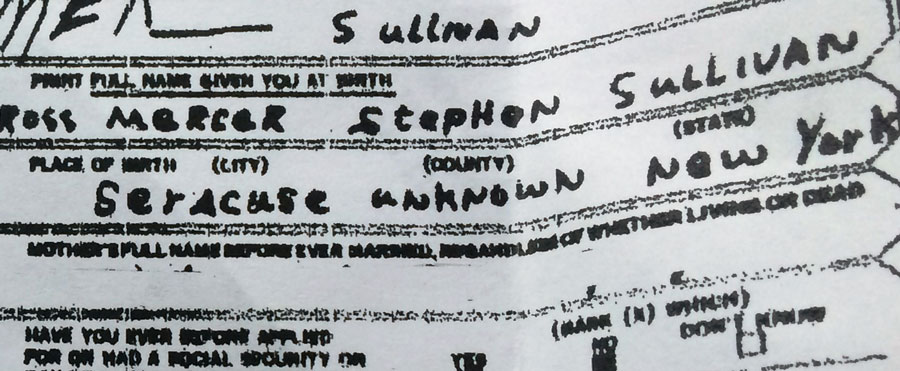 Sullman
PRINT FULL NAME GIVEN YOU AT BIRTH
Ross Mercer Stephen SULLIVAN
PLACE OF BIRTH (CITY) (COUNTY) (STATE)
Seracuse unknown New York
MOTHER'S FULL NAME BEFORE EVER MARRIED, REGARDLESS OF WHETHER LIVING OR DEAD
(MARK (X) WHICH)
HAVE YOU EVER BEFORE APPLIED DON'T KNOW
FOR OR HAD A SOCIAL SECURITY OR YES NO